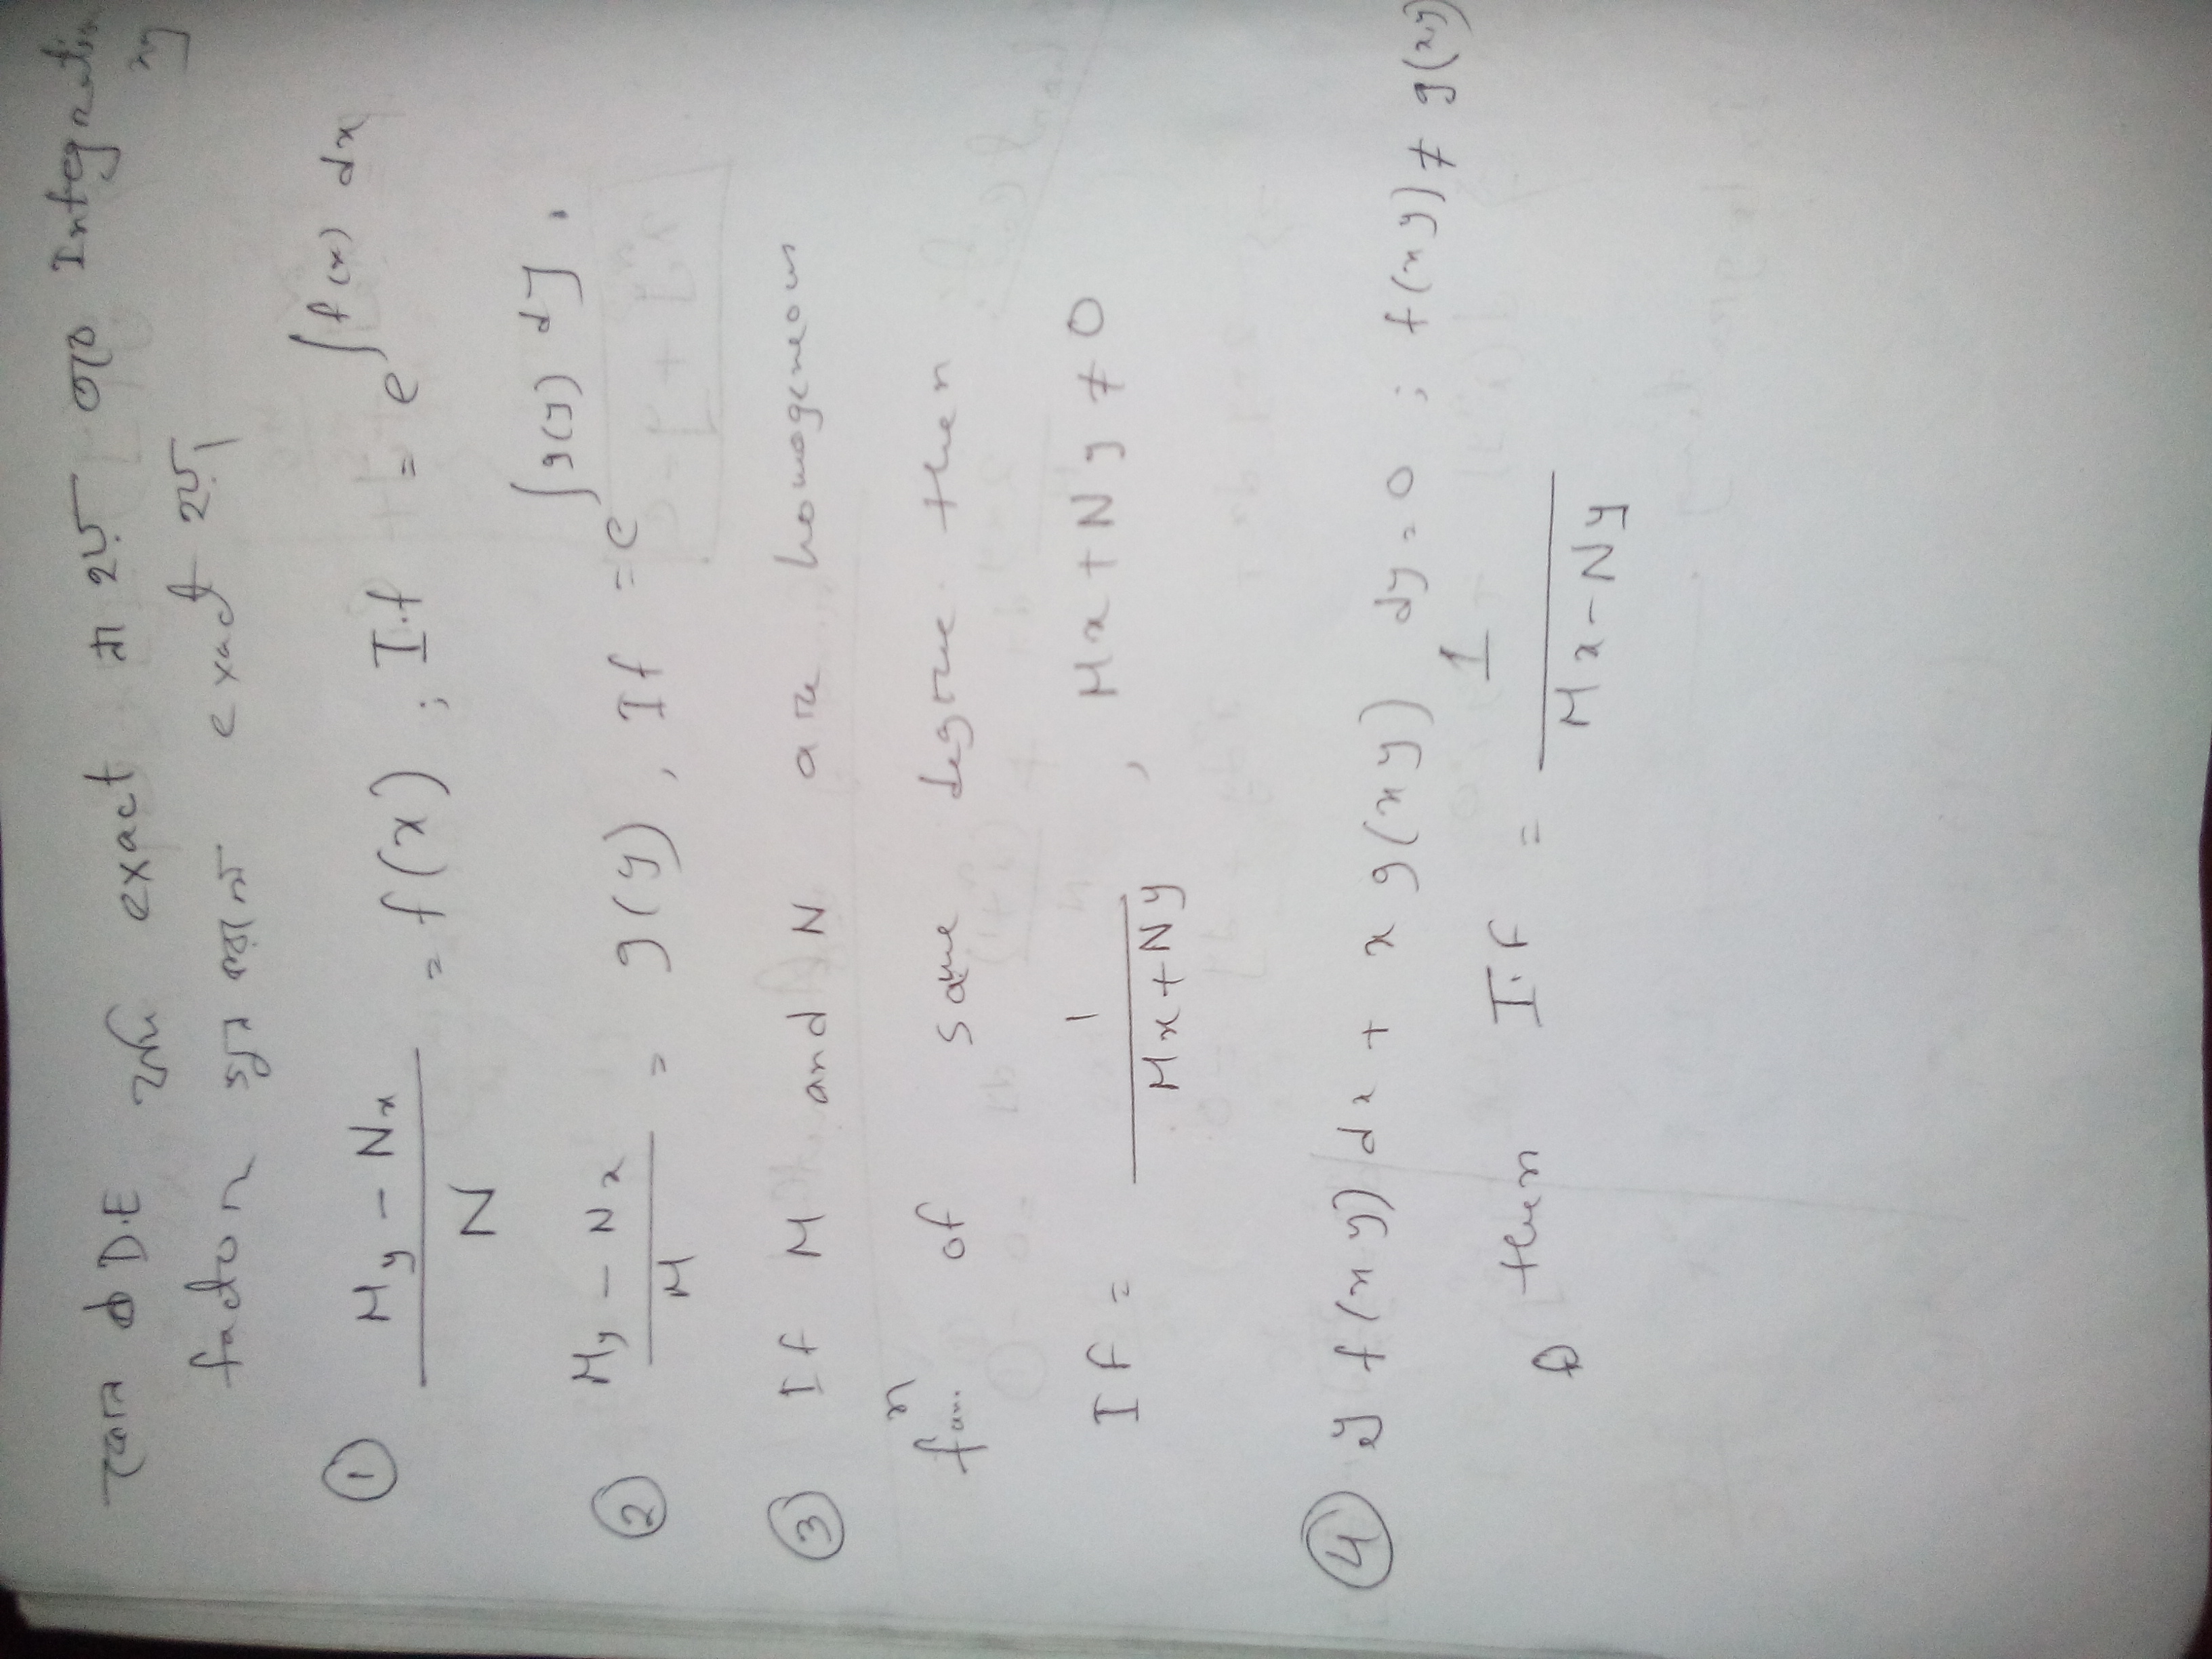 কোন DE যদি exact না হয় তবে Integration
factor গুন করলে exact হয়।
① My - Nx / N = f(x) ; I.f = e^∫f(x) dx
② My - Nx / M = g(y), If = e^∫g(y) dy.
③ If M and N are homogeneous
fun.n of same degree then
If = 1 / Mx+Ny , Mx+Ny ≠ 0
④ y f(xy)dx + x g(xy) dy = 0 ; f(xy) ≠ g(xy)
then I.F = 1 / Mx-Ny